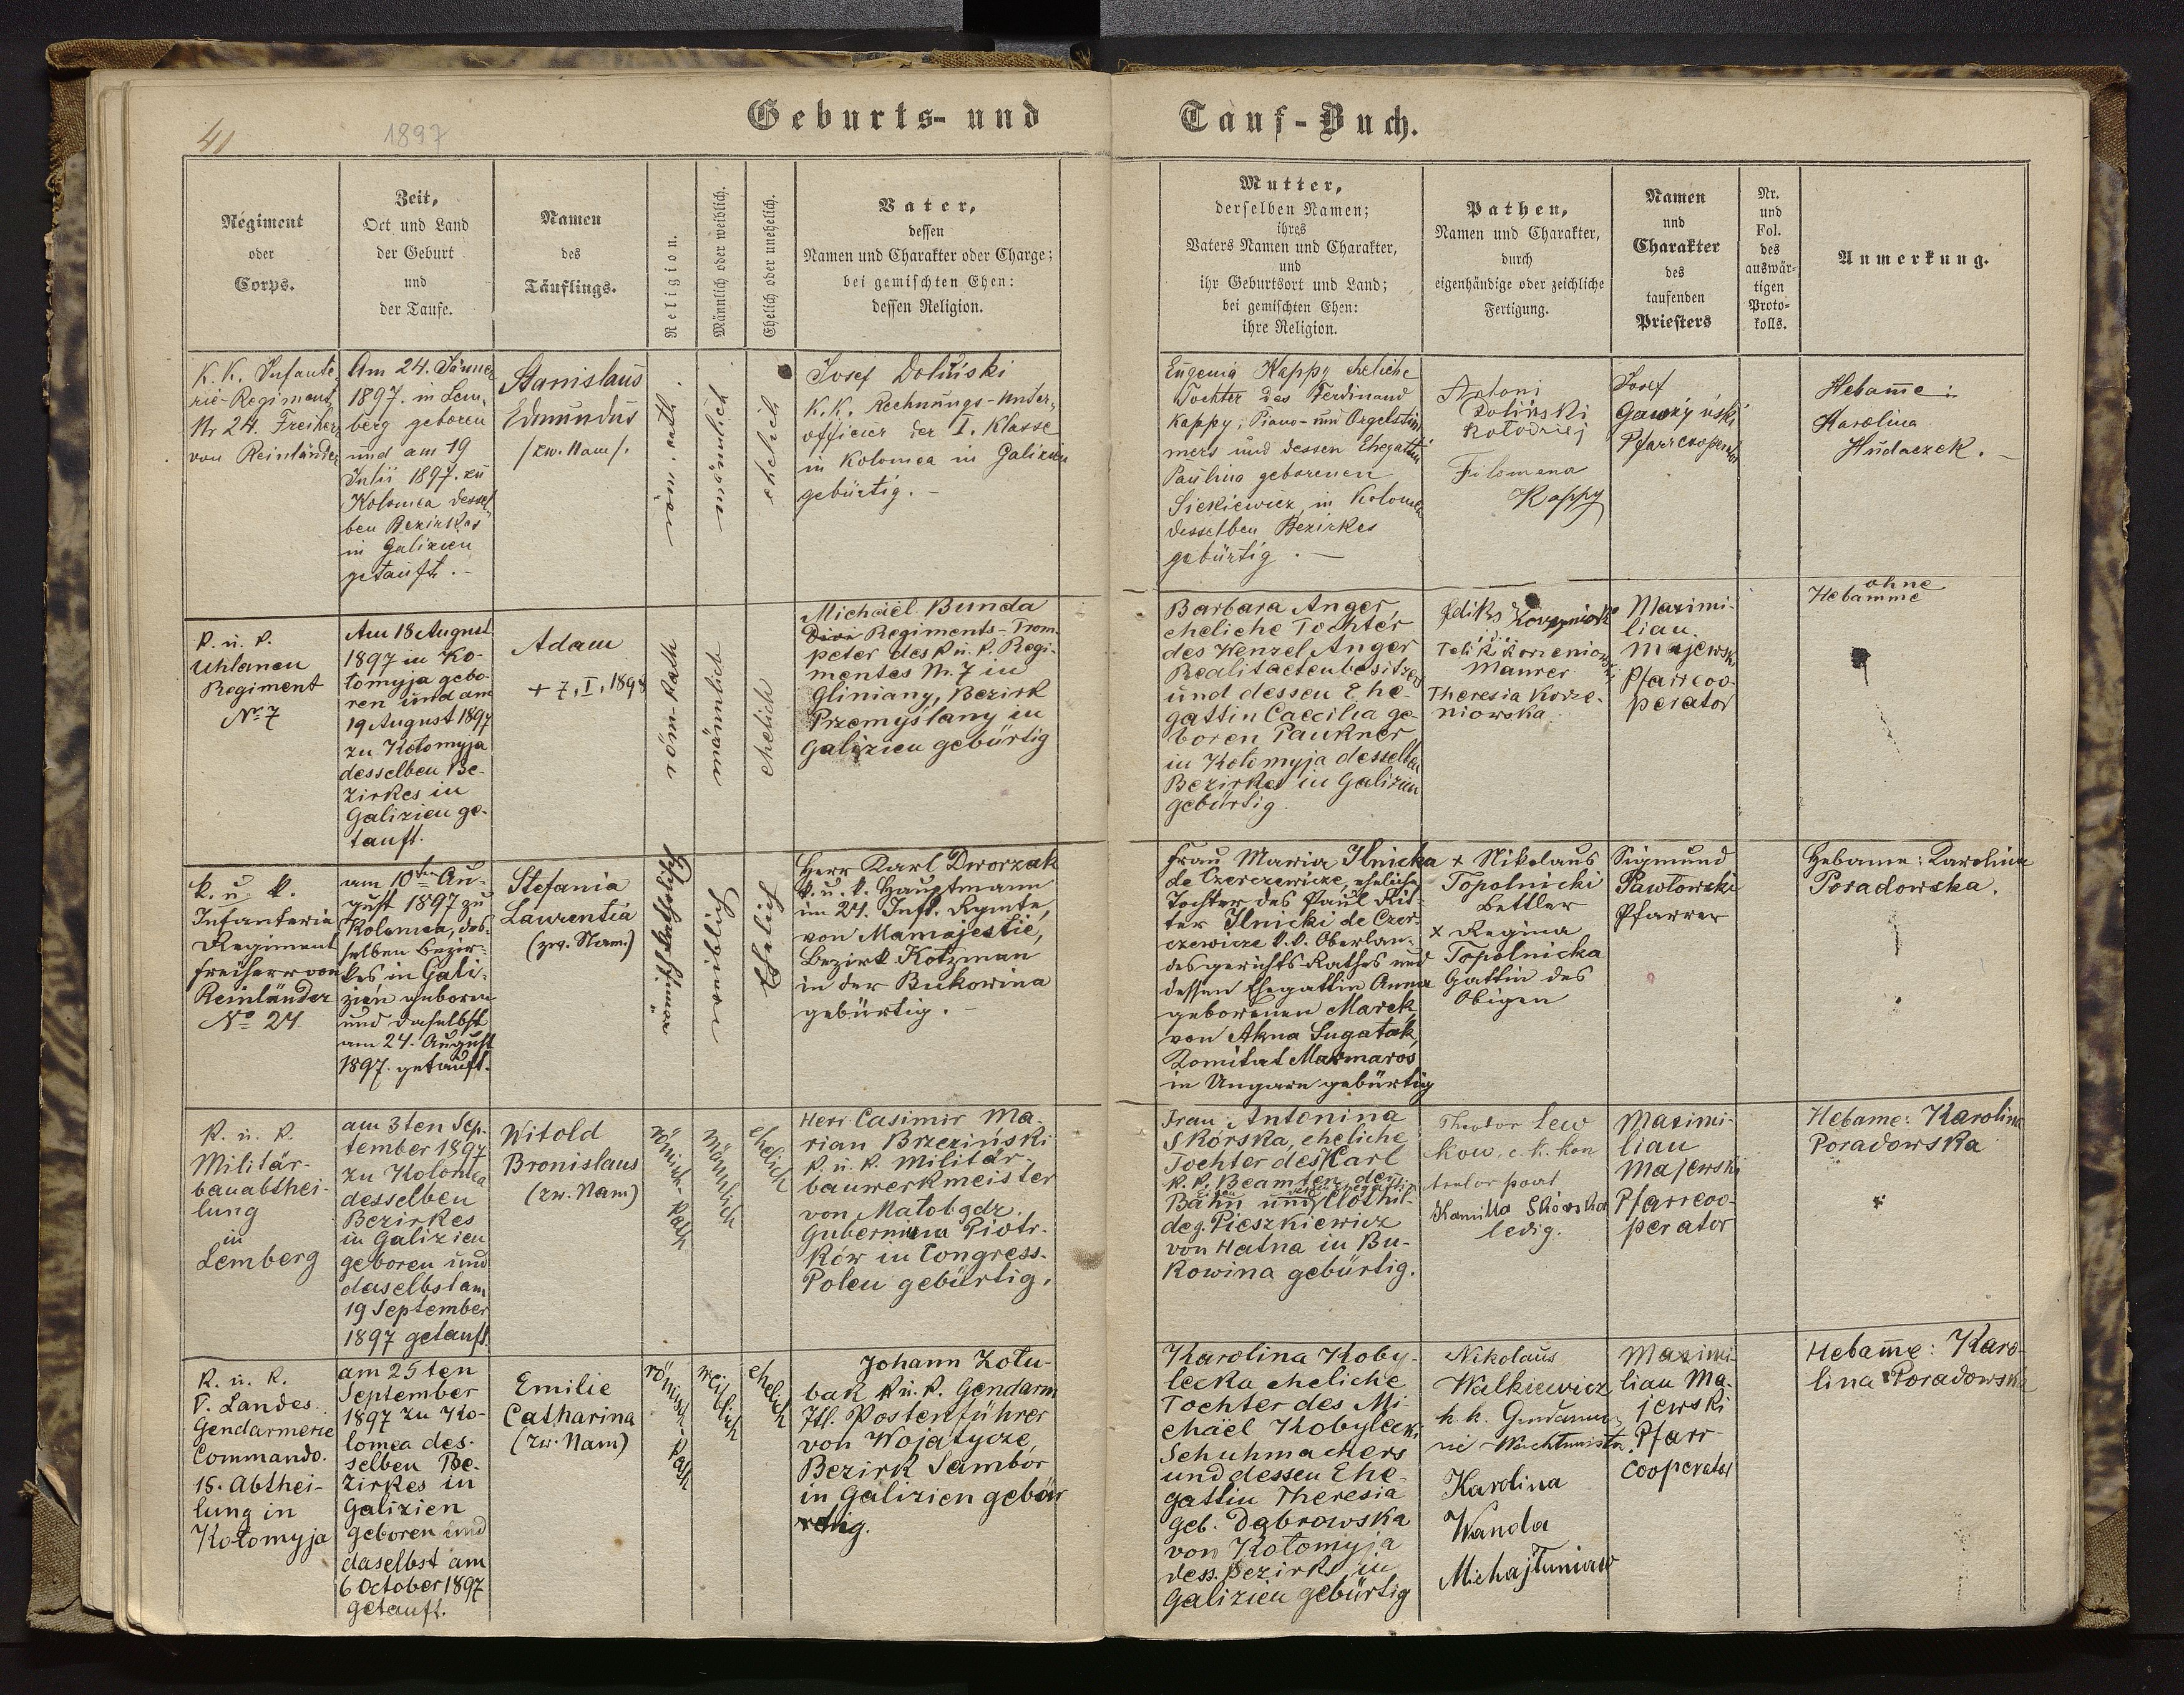 41
1897
Geburts- und Tauf-Buch.
Regiment
oder
Corps.
Zeit,
Ort und Land
der Geburt
und
der Taufe.
Namen
des
Täuflings.
Religion.
Männlich oder weiblich.
Ehelich oder unehelich.
Vater,
dessen
Namen und Charakter oder Charge;
bei gemischten Ehen:
dessen Religion.
Mutter,
derselben Namen;
ihres
Vaters Namen und Charakter,
und
ihr Geburtsort und Land;
bei gemischten Ehen:
ihre Religion.
Pathen,
Namen und Charakter,
durch
eigenhändige oder zeichliche
Fertigung.
Namen
und
Charakter
des
taufenden
Priesters
Nr.
und
Fol.
des
auswär-
tigen
Proto-
kolls.
Anmerkung.
K. K. Infante
rie-Regiment
Nr 24. Freiherr
von Reinländer
Am 24. Jänner
1897. in Lem-
berg geboren
und am 19
Julii 1897. zu
Kolomea dessel
ben Bezirkes
in Galizien
getauft.
Stanislaus
Edmundus
(zw. Nam).
röm. kath.
männlich
ehelich
Josef Doliński
K. K. Rechnungs-Unter-
officier der I. Klasse
in Kolomea in Galizien
gebürtig.
Eugenia Kappy eheliche
Tochter des Ferdinand
Kappy; Piano- und Orgelstim
mers und dessen Ehegattin
Paulina geborenen
Siekiewicz, in Kolomea
desselben Bezirkes
gebürtig.
Antoni
Doliński
Kołodziej
Filomena
Kappy
Josef
Pfarrcooperator
Hebame:
Karolina
Hudaczek.
K. u. K.
Uhlanen
Regiment
No 7
Am 18 August
1897 in Ko-
lomyja gebo-
ren und am
19 August 1897
zu Kołomyja
desselben Be-
zirkes in
Galizien ge-
tauft.
Adam
+ 7, I, 1898
röm-kath
männlich
ehelich
Michaël Bunda
Regiments-Trom-
peter des K u. K. Regi-
mentes N. 7 in
Gliniany, Bezirk
Przemyślany in
Galizien gebürtig
Barbara Anger,
eheliche Tochter
des Wenzel Anger
Realitaetenbesitzers
und dessen Ehe-
gattin Caecilia ge-
boren Paukner
in Kołomyja desselben
Bezirkes in Galizien
gebürtig.
Maurer
Theresia Korze-
niowska
Maximi-
lian
Majewski
Pfarrcoo-
perator
ohne
Hebamme
K. u. K.
Infanterie
Regiment
Freiherr von
Reinländer
No 24
am 10ten Au-
gust 1897 zu
Kolomea, des-
selben Bezir-
kes in Gali-
zien geboren
und daselbst
am 24. August
1897. getauft.
Stefania
Laurentia
(zw. Nam.)
römischkatholisch
weiblich
ehelich
Herr Karl Dworzak
k. u. k. Hauptmann
im 24. Inft. Rgmte,
von Mamajestie,
Bezirk Kotzman
in der Bukowina
gebürtig.
Frau Maria Ilnicka
de Czerczewicze, eheliche
Tochter des Paul Rit-
ter Ilnicki de Czer-
czewicze k. k. Oberlan-
desgerichts-Rathes und
dessen Ehegattin Anna
geborenen Marek,
von Akna Sugatak,
Komitat Marmaros
in Ungarn gebürtig
+ Nikolaus
Topolnicki
Bettler
x Regina
Topolnicka
Gattin des
Obigen
Sigmund
Pawłowski
Pfarrer
Hebame: Karolina
Poradowska.
K. u. K.
Militär-
bauabthei-
lung
in
Lemberg
am 3ten Sep-
tember 1897
zu Kolomea
desselben
Bezirkes
in Galizien
geboren und
daselbst am
19 September
1897 getauft.
Witold
Bronislaus
(zw. Nam)
römisch-kath
männlich
ehelich
Herr Casimir Ma-
rian Brzeziński
K. u. K. Militär-
bauwerkmeister
von Małobądz.
Gubernium Piotr-
ków in Congress-
Polen gebürtig.
Frau Antonina
Skórska, eheliche
Tochter des Karl
K. K. Beamten der
Bahn und Clothil-
de g. Pieszkiewicz
von Hatna in Bu-
kowina gebürtig.
Theodor Lew
Kamilla Skórska
ledig.
Maximi-
lian
Majewski
Pfarrcoo-
perator
Hebame: Karolina
Poradowska
K. u. K.
V. Landes
Gendarmerie
Commando.
15. Abthei-
lung in
Kołomyja
am 25ten
September
1897 zu Ko-
lomea des-
selben Be-
zirkes in
Galizien
geboren und
daselbst am
6 October 1897
getauft.
Emilie
Catharina
(zw. Nam)
römisch-kath
weiblich
ehelich
Johann Zołu-
bak K u. K. Gendarm
Ttl. Postenführer
von Wojatycze,
Bezirk Sambor
in Galizien gebür
tig.
Karolina Koby-
lecka eheliche
Tochter des Mi-
chäel Kobylecki
Schuhmachers
und dessen Ehe-
gattin Theresia
geb. Dąbrowska
von Kołomyja
dess. Bezirks in
Galizien gebürtig
Nikolaus
Walkiewicz
k. k. Gendarme-
rie Wachtmeister.
Karolina
Wanda
Michajluniaw
Maximi-
lian Ma-
jewski
Pfarr-
Cooperator
Hebamme: Karo-
lina Poradowska